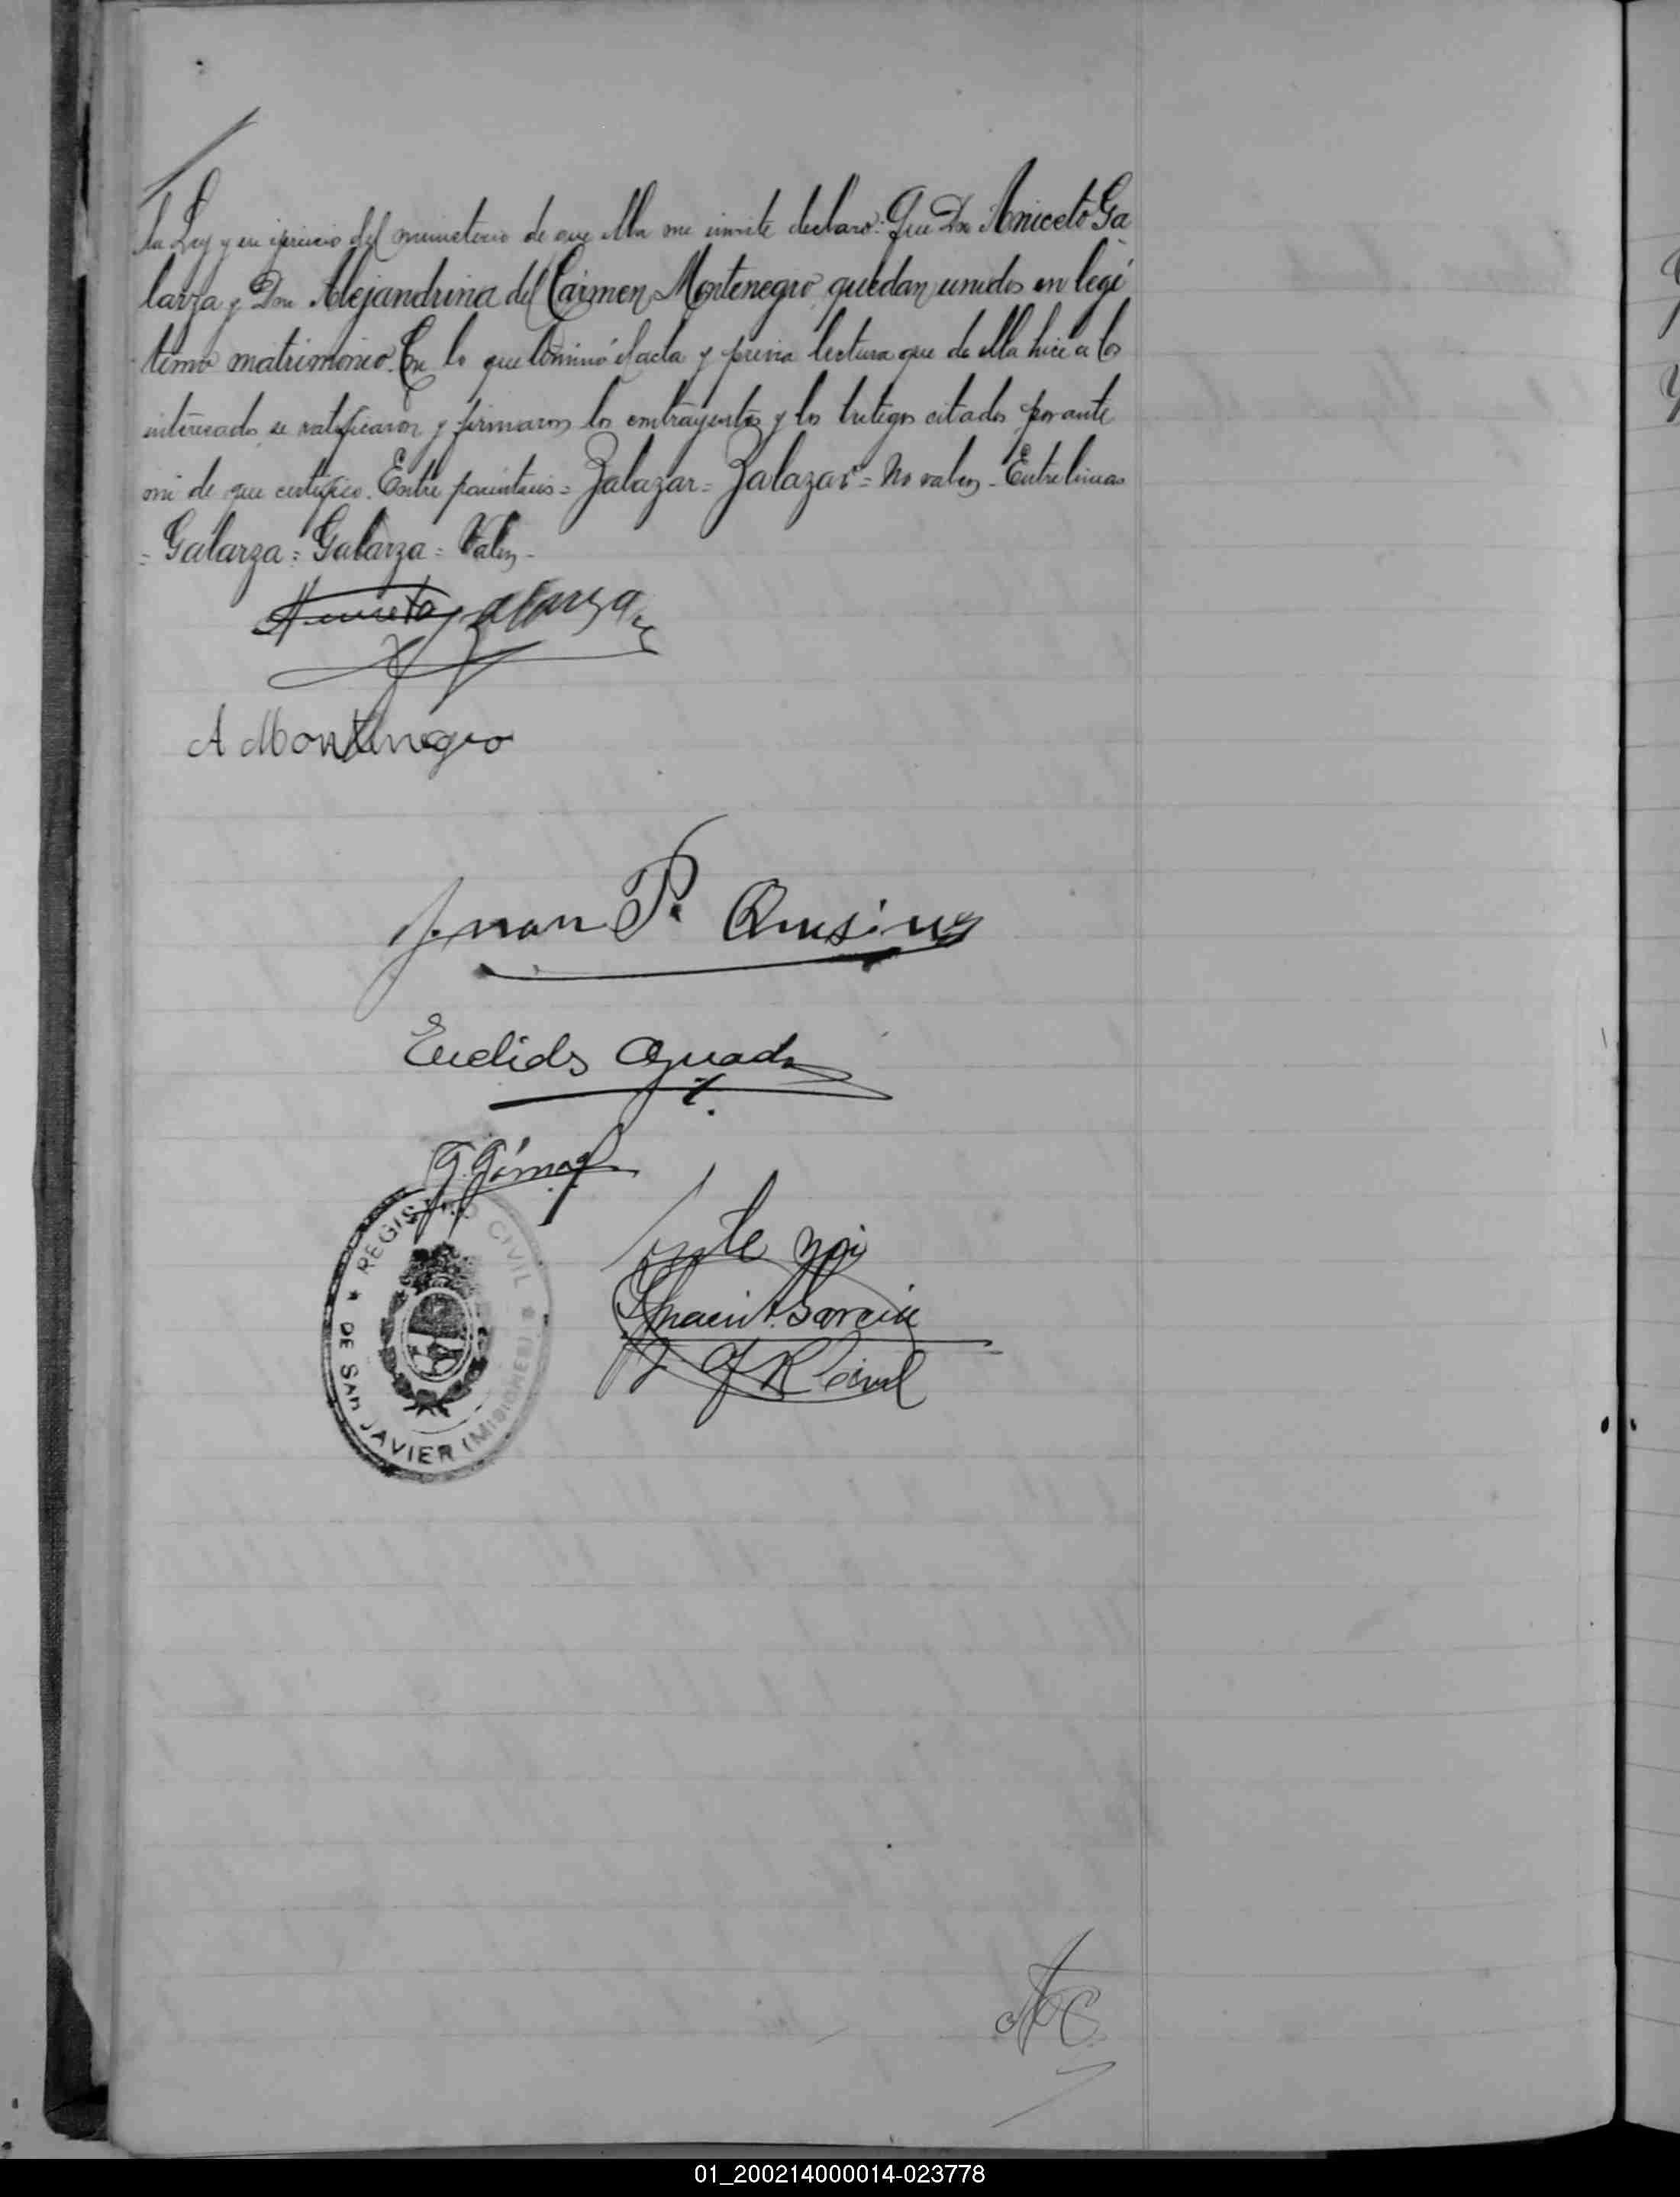 la Ley y en ejercicio del ministerio de que ella me inviste declaro: Que Don Aniceto Ga
larza y Doña Alejandrina del Carmen Montenegro, quedan unidos en legí
timo matrimonio. Con lo que terminó el acta y previa lectura que de ella hice a los
interesados se ratificaron y firmaron los contrayentes y los testigos citados por ante
mi de que certifico. Entre parentesis = Zalazar = Zalazar = No valen - Entrelineas
= Galarza = Galarza = Valen -
Aniceto Galarza
A Montenegro
Juan P.
Euclides Aguad
G. Gómez
REGISTRO CIVIL
DE SAN JAVIER (MISIONES)
Ante mi
Garcia
J R Civil
01_200214000014-023778